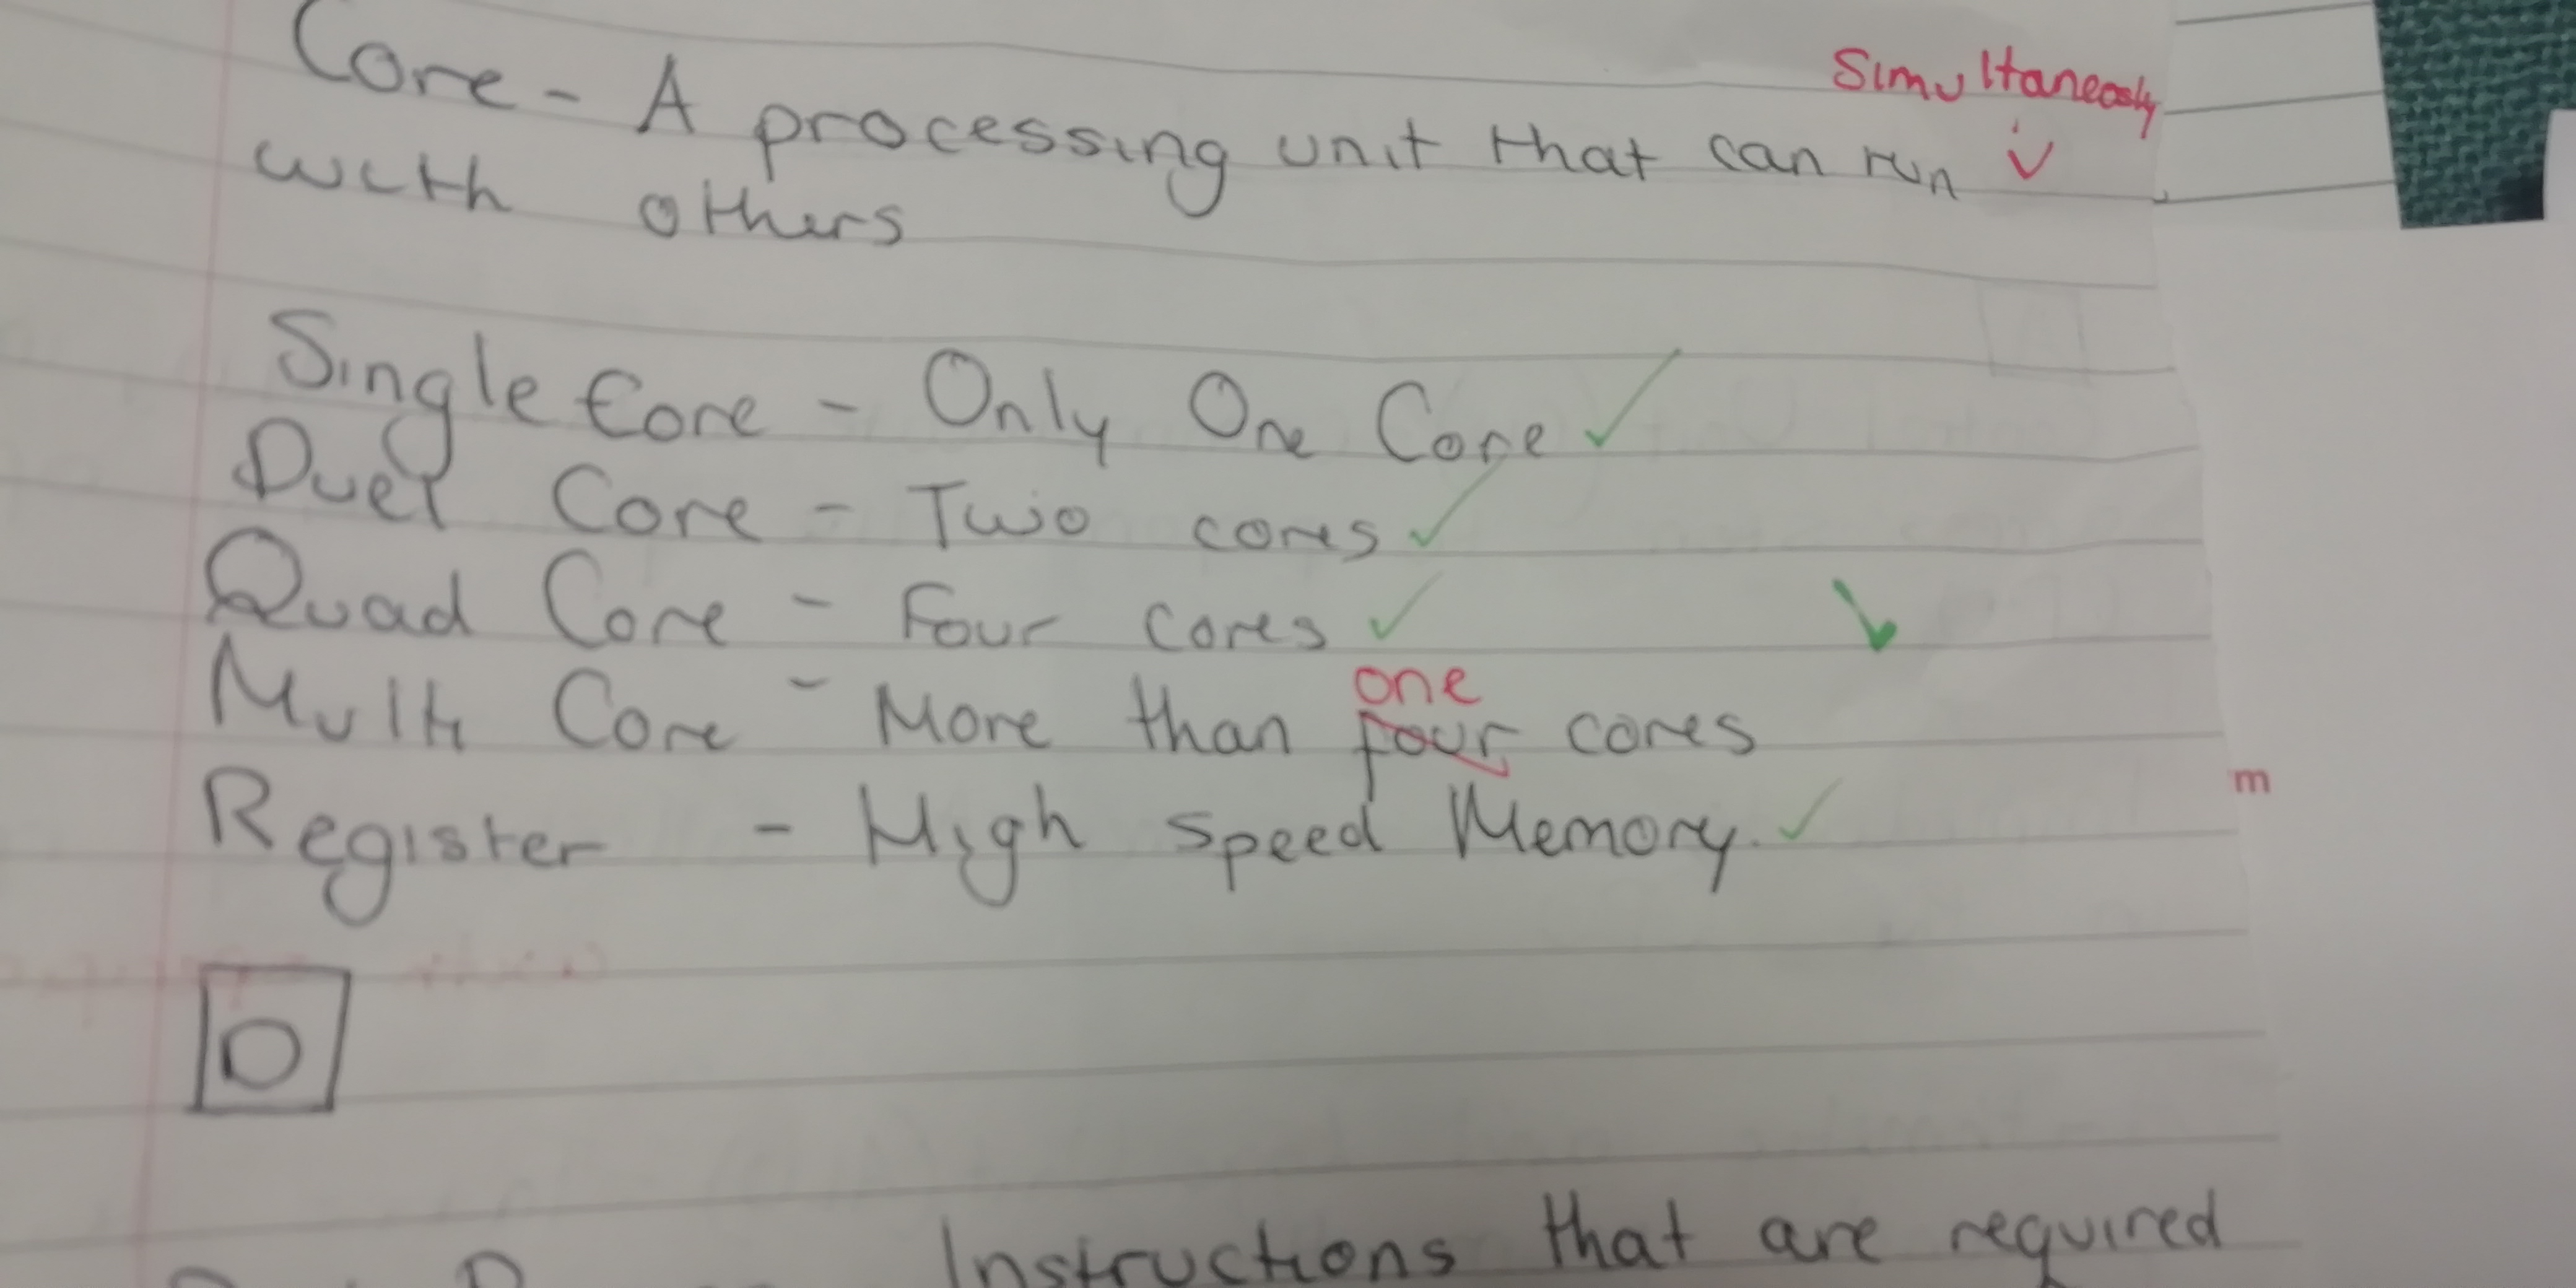 Simultaneosly
Core - A processing unit that can run
with others
Single Core - Only One Core
Duel Core - Two cores
Quad Core - Four cores
one
Multi Core - More than four cores
m
Register - High speed Memory.
D
Instructions that are required